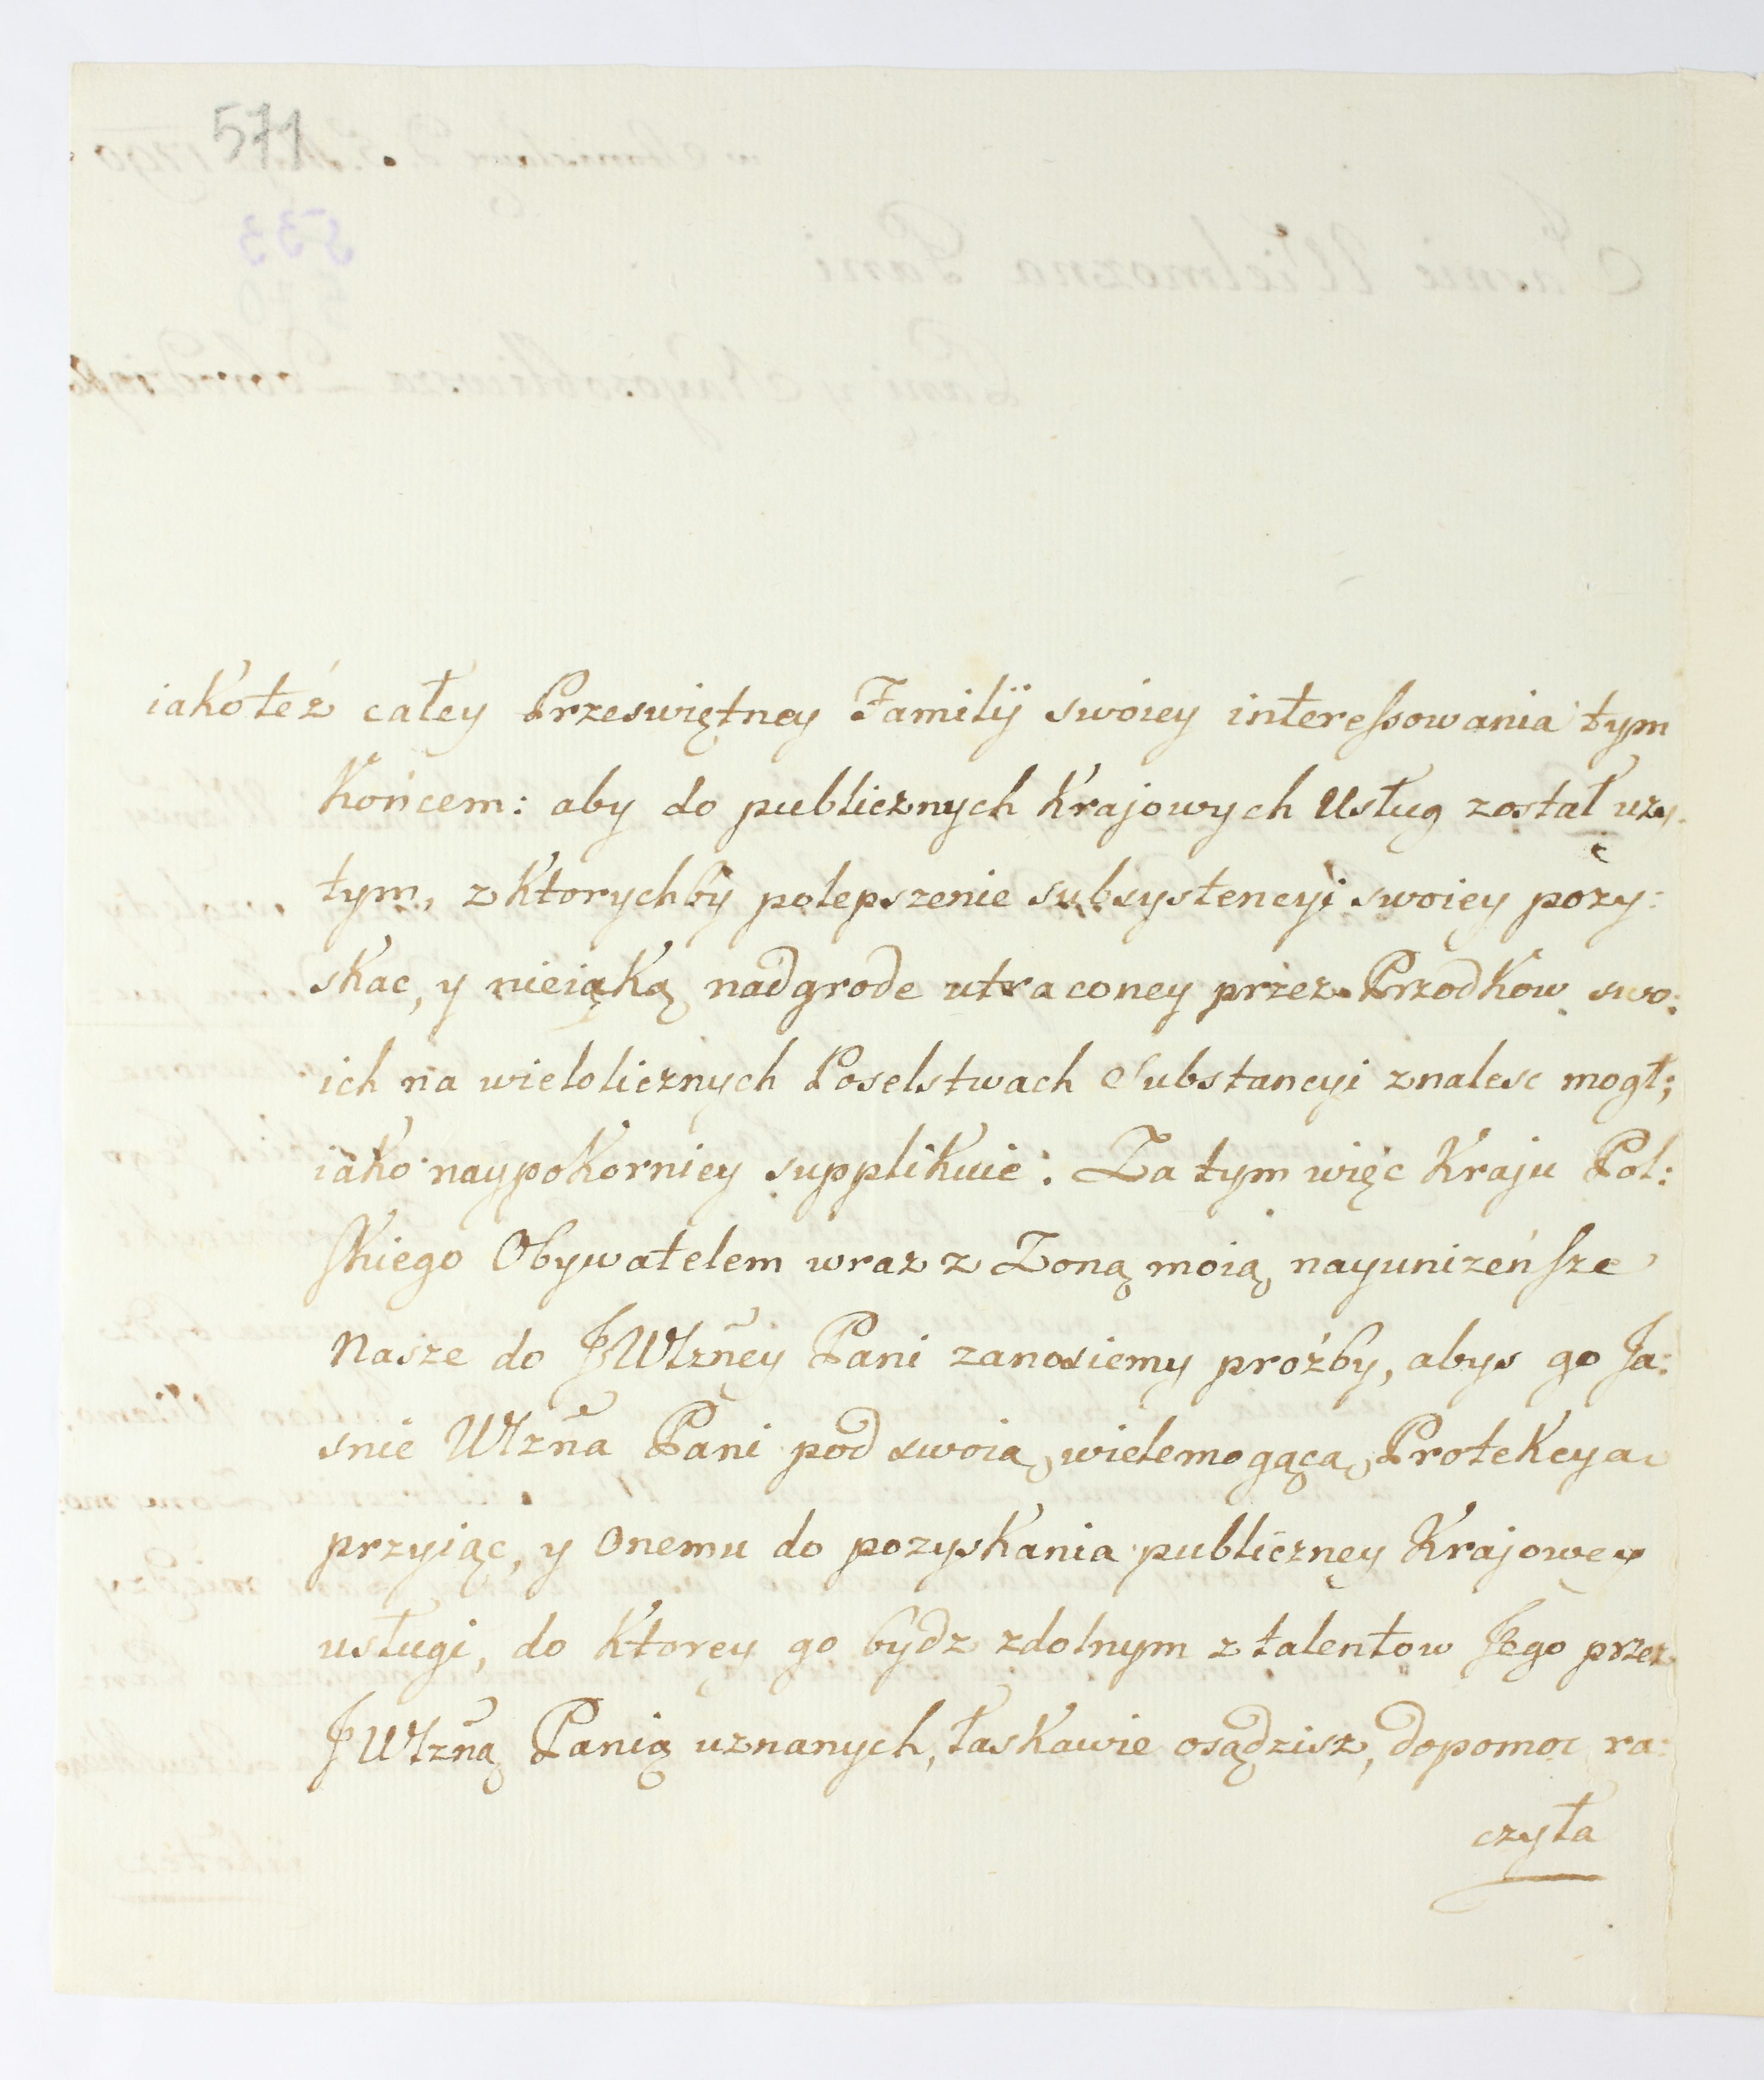 571
iakoteż całey Przeswiętney Familij swoiey interessowania tym
Końcem: aby do publicznych Krajowych Usług został uzy:
tym, z Ktorychby polepszenie subsystencyi swoięy pozy:
skac, y nieiąką nadgrode utraconey przez Przodków swo:
ich na wielolicznych Poselstwach Substancyi znalesc mogł;
iako naypokorniey supplikuie: Za tym więc Kraju Pol:
skiego Obywatelem wraz z Zoną moią nayunizeńsze
Nasze do JWWzñey Pani zanosiemy proźby, abys go Ja:
snie Wlzña Pani pod swoią wielemogącą Protekcyą
przyiąc, y Onemu do pozyskania publicznęy Krajowęy
usługi, do Ktorey go bydz zdolnym z talentow Jego przez
JWlzñą Panią uznanych, łaskawie osądzisz, dopomoc ra:
czyła